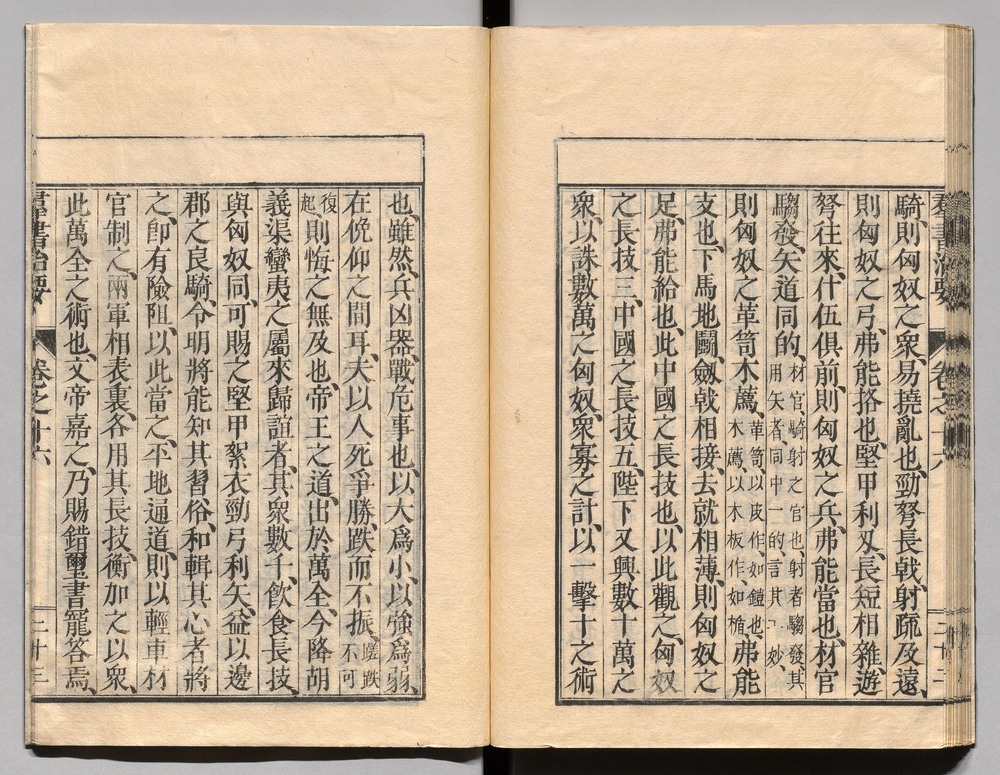 騎、則匈奴之衆易撓亂也、勁弩長戟、射疏及遠、
則匈奴之弓、弗能挌也、堅甲利刄、長短相雜、遊
弩往來、什伍俱前、則匈奴之兵、弗能當也、材官
騶發、矢道同的、材官、騎射之官也、射者騶發、其
用矢者、同中一的、言其工妙、
則匈奴之革笥木薦、革笥、以皮作、如鎧也、
木薦、以木板作、如楯、弗能
支也、下馬地鬭、劒戟相接、去就相薄、則匈奴之
足、弗能給也、此中國之長技也、以此觀之、匈奴
之長技三、中國之長技五、陛下又興數十萬之
衆、以誅數萬之匈奴、衆寡之計、以一擊十之術
也、雖然、兵凶器、戰危事也、以大爲小、以強爲弱、
在俛仰之間耳、夫以人死爭勝、跌而不振、蹉跌
不可
復
起、則悔之無及也、帝王之道、出於萬全、今降胡
義渠蠻夷之屬來歸誼者、其衆數千、飲食長技、
與匈奴同、可賜之堅甲絮衣勁弓利矢、益以邊
郡之良騎、令明將能知其習俗、和輯其心者將
之、卽有險阻、以此當之、平地通道、則以輕車材
官制之、兩軍相表裏、各用其長技、衡加之以衆、
此萬全之術也、文帝嘉之、乃賜錯璽書寵答焉、
羣書治要 卷之十六 二十三